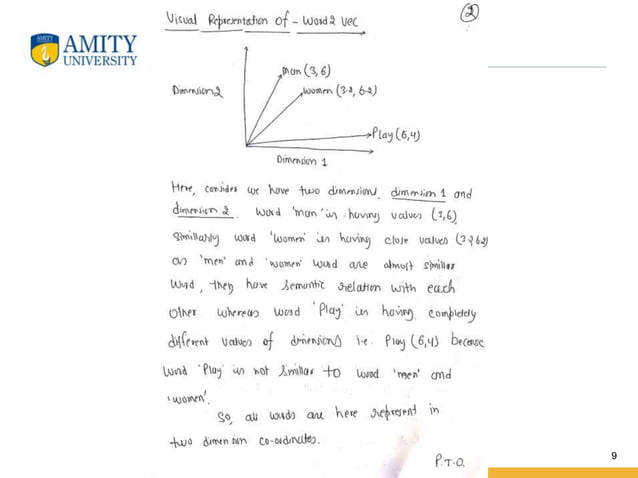 Visual Representation of - Word2 vec
2
AMITY
AMITY
UNIVERSITY
man (3,6)
women (3.2, 6.2)
Dimension 2
Play (6,4)
Dimension 1
Here, consider we have two dimensions, dimension 1 and
dimension 2. Word 'man' is having values (3,6)
Simillarly word 'women' is having close values (3.2 6.2)
as 'men' and 'women' word are almost simillar
word, they have semantic relation with each
other whereas word 'Play' is having completely
different values of dimensions i.e. Play (6,4) because
word 'Play' is not simillar to word 'men' and
'women'.
So, all words are here represent in
two dimension co-ordinates.
P.T.O.
9